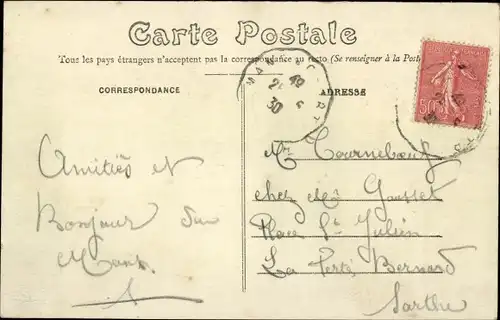 Carte Postale
Tous les pays étrangers n'acceptent pas la correspondance au recto (Se renseigner à la Poste
CORRESPONDANCE
ADRESSE
50
Amitiés et
Bonjour du
Mans.
Mr Tourneboeuf
chez Mr Gousset
Place St Julien
La Ferté Bernard
Sarthe